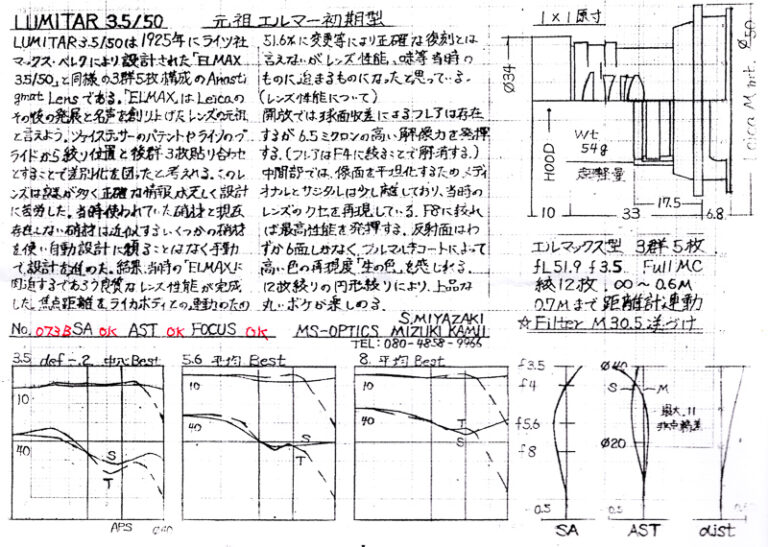 LUMITAR 3.5/50 元祖エルマー初期型
LUMITAR 3.5/50は1925年にライツ社
マックス・ベレクにより設計された「ELMAX
3.5/50」と同様の3群5枚構成のAnasti
gmat Lensである。「ELMAX」はLeicaの
その後の発展と名声を創り上げたレンズの元祖
と言えよう。ツァイステッサーのパテントやライツのプ
ライドから絞り位置と後群3枚貼り合わせ
とすることで差別化を図ったと考えれる。このレ
ンズは謎が多く正確な情報は乏しく設計
に苦労した。当時使われていた硝材と現在
存在しない硝材は近似するいくつかの硝材
を使い自動設計に頼ることはなく手動
で設計を進めた。結果、当時の「ELMAX」に
るであろう良質なレンズ性能が完成
した。焦点距離をライカボディとの連動のため
51.6%に変更等により正確な復刻とは
言えないがレンズ性能、味等当時の
ものに迫るものになったと思っている。
(レンズ性能について)
開放では球面収差によるフレアは存在
するが6.5ミクロンの高い解像力を発揮
する。(フレアはF4に絞ることで解消する。)
中間部では、像面を平坦化するためメディ
オナルとサジタルは少し離しており、当時の
レンズのクセを再現している。F8に絞れ
ば最高性能を発揮する。反射面はわ
ずか6面しかなく、フルマルチコートによって
高い色の再現度「生の色」を感じれる。
12枚絞りの円形絞りにより、上品な
丸いボケが楽しめる。
S.MIYAZAKI
No. 073B SA OK AST OK FOCUS OK MS-OPTICS MIZUKI KAMII
TEL:080-4858-9966
1×1原寸
Ø34
Ø50
Leica M mt.
HOOD
Wt
54g
超軽量
17.5
10
33
6.8
エルマックス型 3群5枚
fL51.9 f3.5 Full MC
絞12枚. ∞~0.6M
0.7Mまで距離計連動
☆Filter M30.5逆づけ
3.5 def-.2 中心Best
10
40
S
T
APS
5.6 平均Best
10
40
S
T
8. 平均Best
10
40
T
S
f3.5
f4
f5.6
f8
0.5
SA
Ø40
S
M
最大.11
非点隔差
Ø20
0.5
AST
0.5
dist